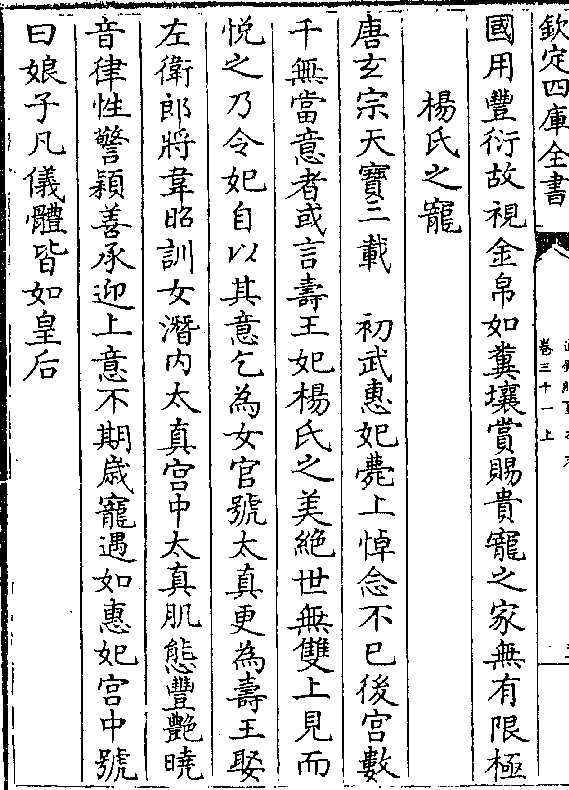 欽定四庫全書
卷三十一上
國用豐衍故視金帛如糞壤賞賜貴寵之家無有限極
楊氏之寵
唐玄宗天寶三載　初武惠妃薨上悼念不已後宮數
千無當意者或言壽王妃楊氏之美絶世無雙上見而
悅之乃令妃自以其意乞為女官號太真更為壽王娶
左衛郎將韋昭訓女潛内太真宮中太真肌態豐艶曉
音律性警穎善承迎上意不期歲寵遇如惠妃宮中號
曰娘子凡儀體皆如皇后